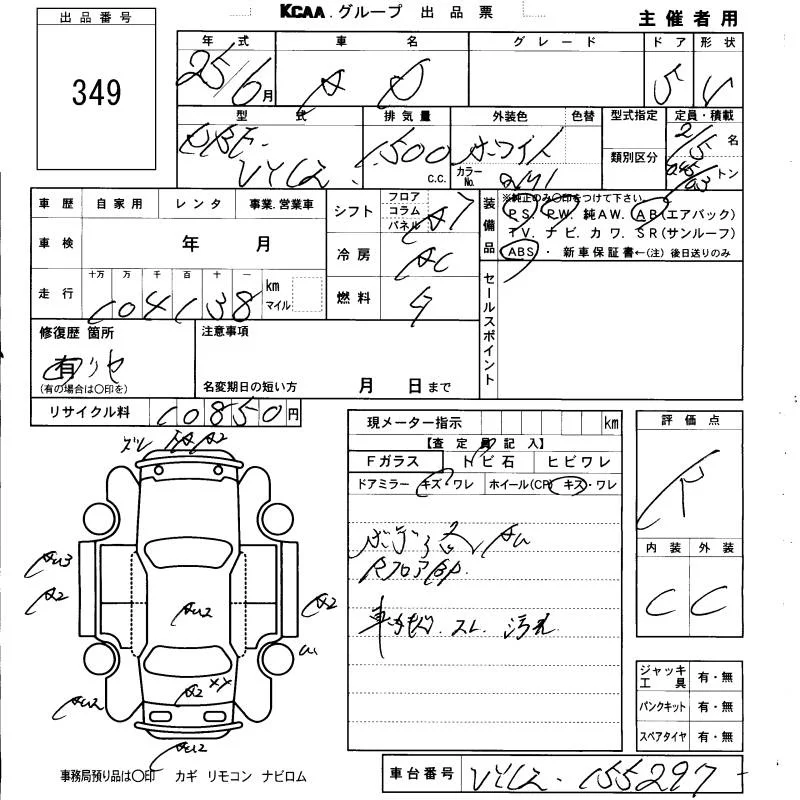 出品番号
349
KCAA.グループ 出品票
主催者用
年式 車名 グレード ドア 形状
25/6月 AD 5 V
型式 排気量 外装色 色替 型式指定 定員・積載
DBF-VY12 1500 c.c. ホワイト
類別区分
カラーNo.
2/5 名
トン
車歴 自家用 レンタ 事業.営業車
シフト フロア コラム パネル A7
装備品
※純正のみ○印をつけて下さい。
PS. PW. 純AW. AB(エアバック)
TV. ナビ. カワ. SR(サンルーフ)
ABS・ 新車保証書←(注) 後日送りのみ
車検 年 月
冷房 AC
走行 十万 万 千 百 十 一
104138 km マイル
燃料 G
セールスポイント
修復歴 箇所
有
(有の場合は○印を)
注意事項
名変期日の短い方 月 日まで
リサイクル料 10850円
現メーター指示 km
【査定員記入】
Fガラス トビ石 ヒビワレ
ドアミラー キズ・ワレ ホイール(CP) キズ・ワレ
評価点
R
内装 外装
C C
ズレ A2
AU3
A2
AU2
A2
A2 XY
AU2
AU2
RフロアBP
汚れ
ジャッキ工具 有・無
パンクキット 有・無
スペアタイヤ 有・無
事務局預り品は○印 カギ リモコン ナビロム
車台番号 VY12-155297